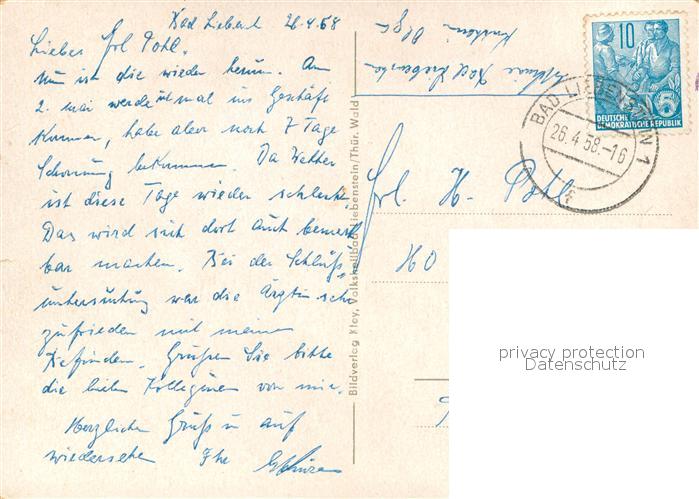 Bad Liebenst. 26.4.58
Liebes Frl. Pohl.
Nun ist die wieder herum. Am
2. Mai werde ich mal ins Geschäft
kommen, habe aber noch 7 Tage
Schonung bekommen. Da Wetter
ist diese Tage wieder schlecht.
Das wird sich dort auch bemerk
bar machen. Bei der Schluß-
untersuchung war die Ärztin sehr
zufrieden mit meinem
Befinden. Grüßen Sie bitte
die lieben Kolleginen von mir.
Herzlichen Gruß u auf
wiedersehen Ihr
Bad Liebenstein
Frl. H. Pohl
HO
10
DEUTSCHE
DEMOKRATISCHE REPUBLIK
BAD LIEBENSTEIN 1
26.4.58.-16
Bildverlag Kley, Volksheilbad Liebenstein/Thür. Wald
privacy protection
Datenschutz